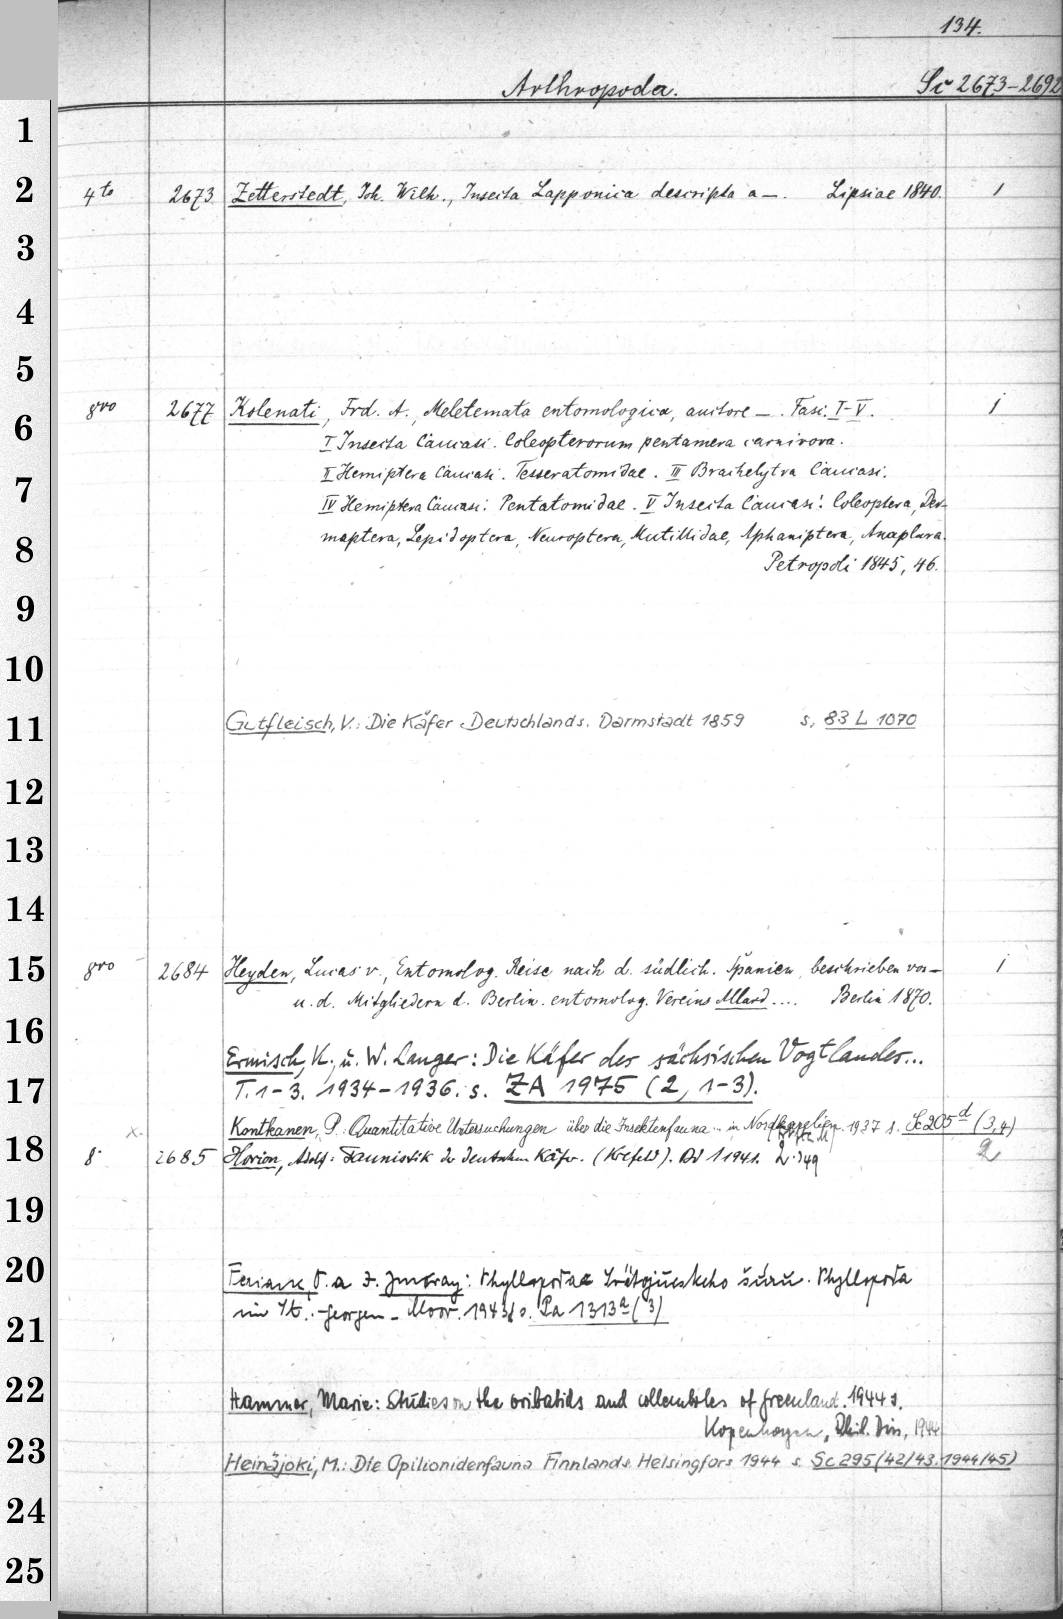 134.
Arthropoda. Sc 2673-2692
1
2
4to 2673 Zetterstedt, Joh. Wilh., Insecta Lapponica descripta a —. Lipsiae 1840. 1
3
4
5
6
8vo 2677 Kolenati, Frd. A., Meletemata entomologica, auctore —. Fasc. I-V. 1
I Insecta Caucasi. Coleopterorum pentamera carnivora.
7
II Hemiptera Caucasi. Tesseratomidae. III Brachelytra Caucasi.
IV Hemiptera Caucasi: Pentatomidae. V Insecta Caucasi: Coleoptera, Der-
8
maptera, Lepidoptera, Neuroptera, Mutillidae, Aphaniptera, Anaplura.
Petropoli 1845, 46.
9
10
11
Gutfleisch, V.: Die Käfer Deutschlands. Darmstadt 1859 s. 83 L 1070
12
13
14
15
8vo 2684 Heyden, Lucas v., Entomolog. Reise nach d. südlich. Spanien, beschrieben von — 1
u. d. Mitgliedern d. Berlin. entomolog. Vereins Allard .... Berlin 1870.
16
Ermisch, K. u. W. Langer: Die Käfer des sächsischen Vogtlandes...
17
T. 1-3. 1934-1936. s. ZA 1975 (2, 1-3).
Kontkanen, P.: Quantitative Untersuchungen über die Insektenfauna .. in Nordkarelien. 1937 s. Sc 205d (3,4)
18
x.
8. 2685 Horion, Adolf: Faunistik der deutschen Käfer. (Krefeld). Bd 1 1941. 2. 1949 2
19
20
Ferianc, O. a F. : Phyllopoda šúru. Phyllopoda
im St. -Georgen- Moor. 1943 s. Pa 1313a (3)
21
22
Hammer, Marie: Studies on the oribatids and collemboles of Greenland. 1944 s.
Kopenhagen, Phil. Diss, 1944
23
Heinäjoki, M.: Die Opilionidenfauna Finnlands. Helsingfors 1944 s. Sc 295 (42/43.1944/45)
24
25